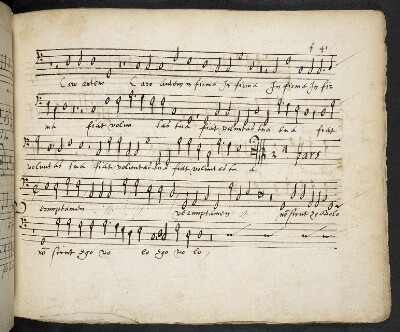 f 41
Caro autem Caro autem infirma Infirma Infirma Infir
ma fiat volun tas tua fiat voluntas tua tua fiat
voluntas tua fiat voluntas tua fiat voluntas tu a 2 pars
verumptamen verumptamen nō sicut ego volo
nō sicut ego vo lo ego vo lo